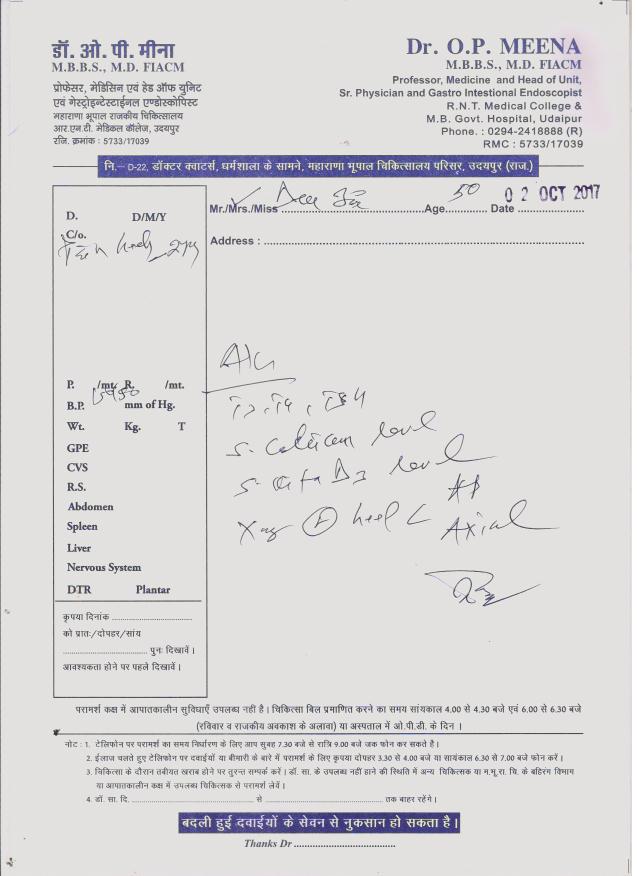 डॉ. ओ. पी. मीना
M.B.B.S., M.D. FIACM
प्रोफेसर, मेडिसिन एवं हेड ऑफ युनिट
एवं गेस्ट्रोइन्टेस्टाईनल एण्डोस्कोपिस्ट
महाराणा भूपाल राजकीय चिकित्सालय
आर.एन.टी. मेडिकल कॉलेज, उदयपुर
रजि. क्रमांक : 5733/17039
Dr. O.P. MEENA
M.B.B.S., M.D. FIACM
Professor, Medicine and Head of Unit,
Sr. Physician and Gastro Intestional Endoscopist
R.N.T. Medical College &
M.B. Govt. Hospital, Udaipur
Phone. : 0294-2418888 (R)
RMC : 5733/17039
नि.– D-22, डॉक्टर क्वाटर्स, धर्मशाला के सामने, महाराणा भूपाल चिकित्सालय परिसर, उदयपुर (राज.)
Mr./Mrs./Miss Age 50 Date 02 OCT 2017
Address :
D. D/M/Y
C/o.
P. /mt. R. /mt.
B.P. mm of Hg.
Wt. Kg. T
GPE
CVS
R.S.
Abdomen
Spleen
Liver
Nervous System
DTR Plantar
T3, T4, TSH
S. Calcium level
S. Vita D3 level
Xray heel < AP
Axial
कृपया दिनांक
को प्रातः/दोपहर/सांय
पुनः दिखावें।
आवश्यकता होने पर पहले दिखावें।
परामर्श कक्ष में आपातकालीन सुविधाएँ उपलब्ध नहीं है। चिकित्सा बिल प्रमाणित करने का समय सांयकाल 4.00 से 4.30 बजे एवं 6.00 से 6.30 बजे
(रविवार व राजकीय अवकाश के अलावा) या अस्पताल में ओ.पी.डी. के दिन।
नोट : 1. टेलिफोन पर परामर्श का समय निर्धारण के लिए आप सुबह 7.30 बजे से रात्रि 9.00 बजे जक फोन कर सकते है।
2. ईलाज चलते हुए टेलिफोन पर दवाईयों या बीमारी के बारे में परामर्श के लिए कृपया दोपहर 3.30 से 4.00 बजे या सायंकाल 6.30 से 7.00 बजे फोन करें।
3. चिकित्सा के दौरान तबीयत खराब होने पर तुरन्त सम्पर्क करें। डॉ. सा. के उपलब्ध नहीं हाने की स्थिति में अन्य चिकित्सक या म.भू.रा. चि. के बहिरंग विभाग
या आपातकालीन कक्ष में उपलब्ध चिकित्सक से परामर्श लेवें।
4. डॉ. सा. दि. से तक बाहर रहेंगे।
बदली हुई दवाईयों के सेवन से नुकसान हो सकता है।
Thanks Dr